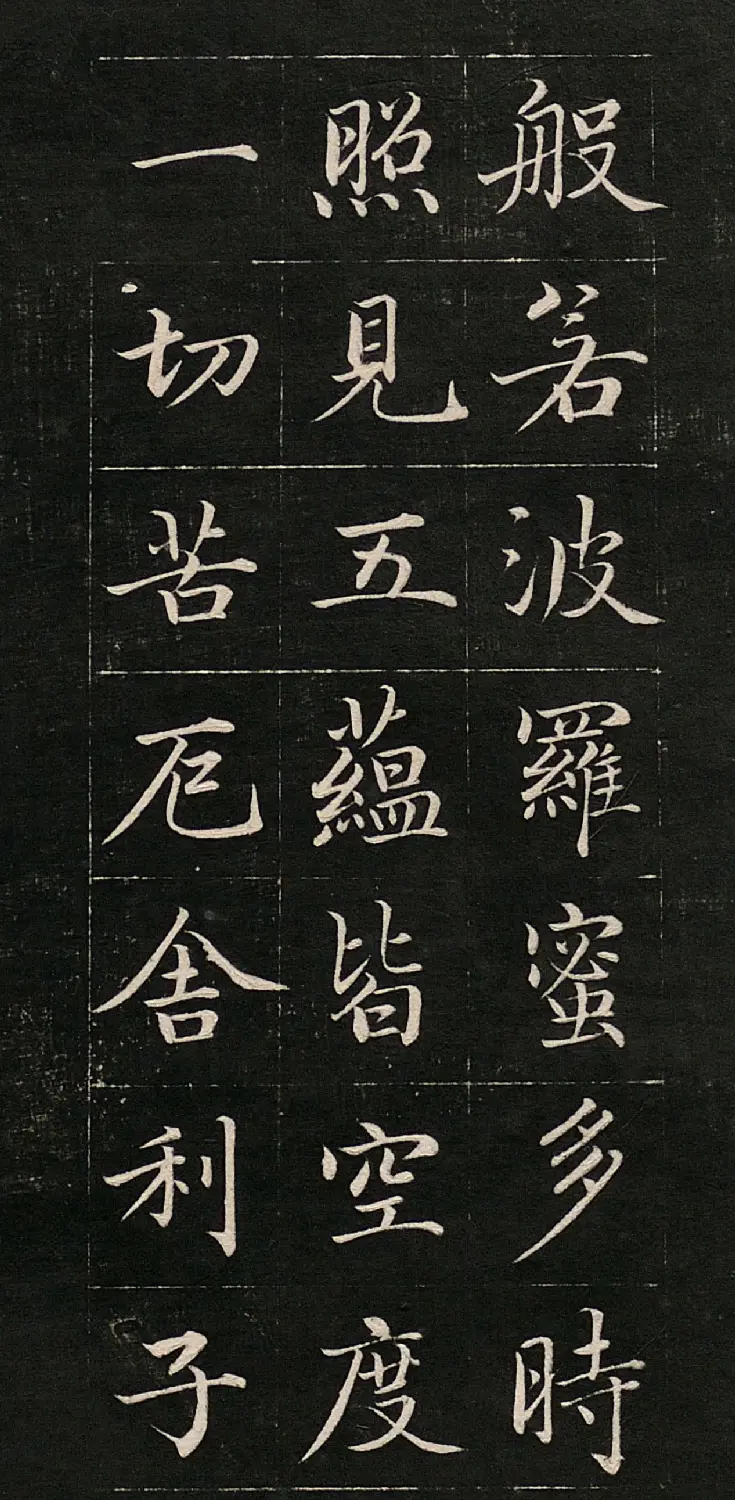 般若波羅蜜多時
照見五蘊皆空度
一切苦厄舍利子